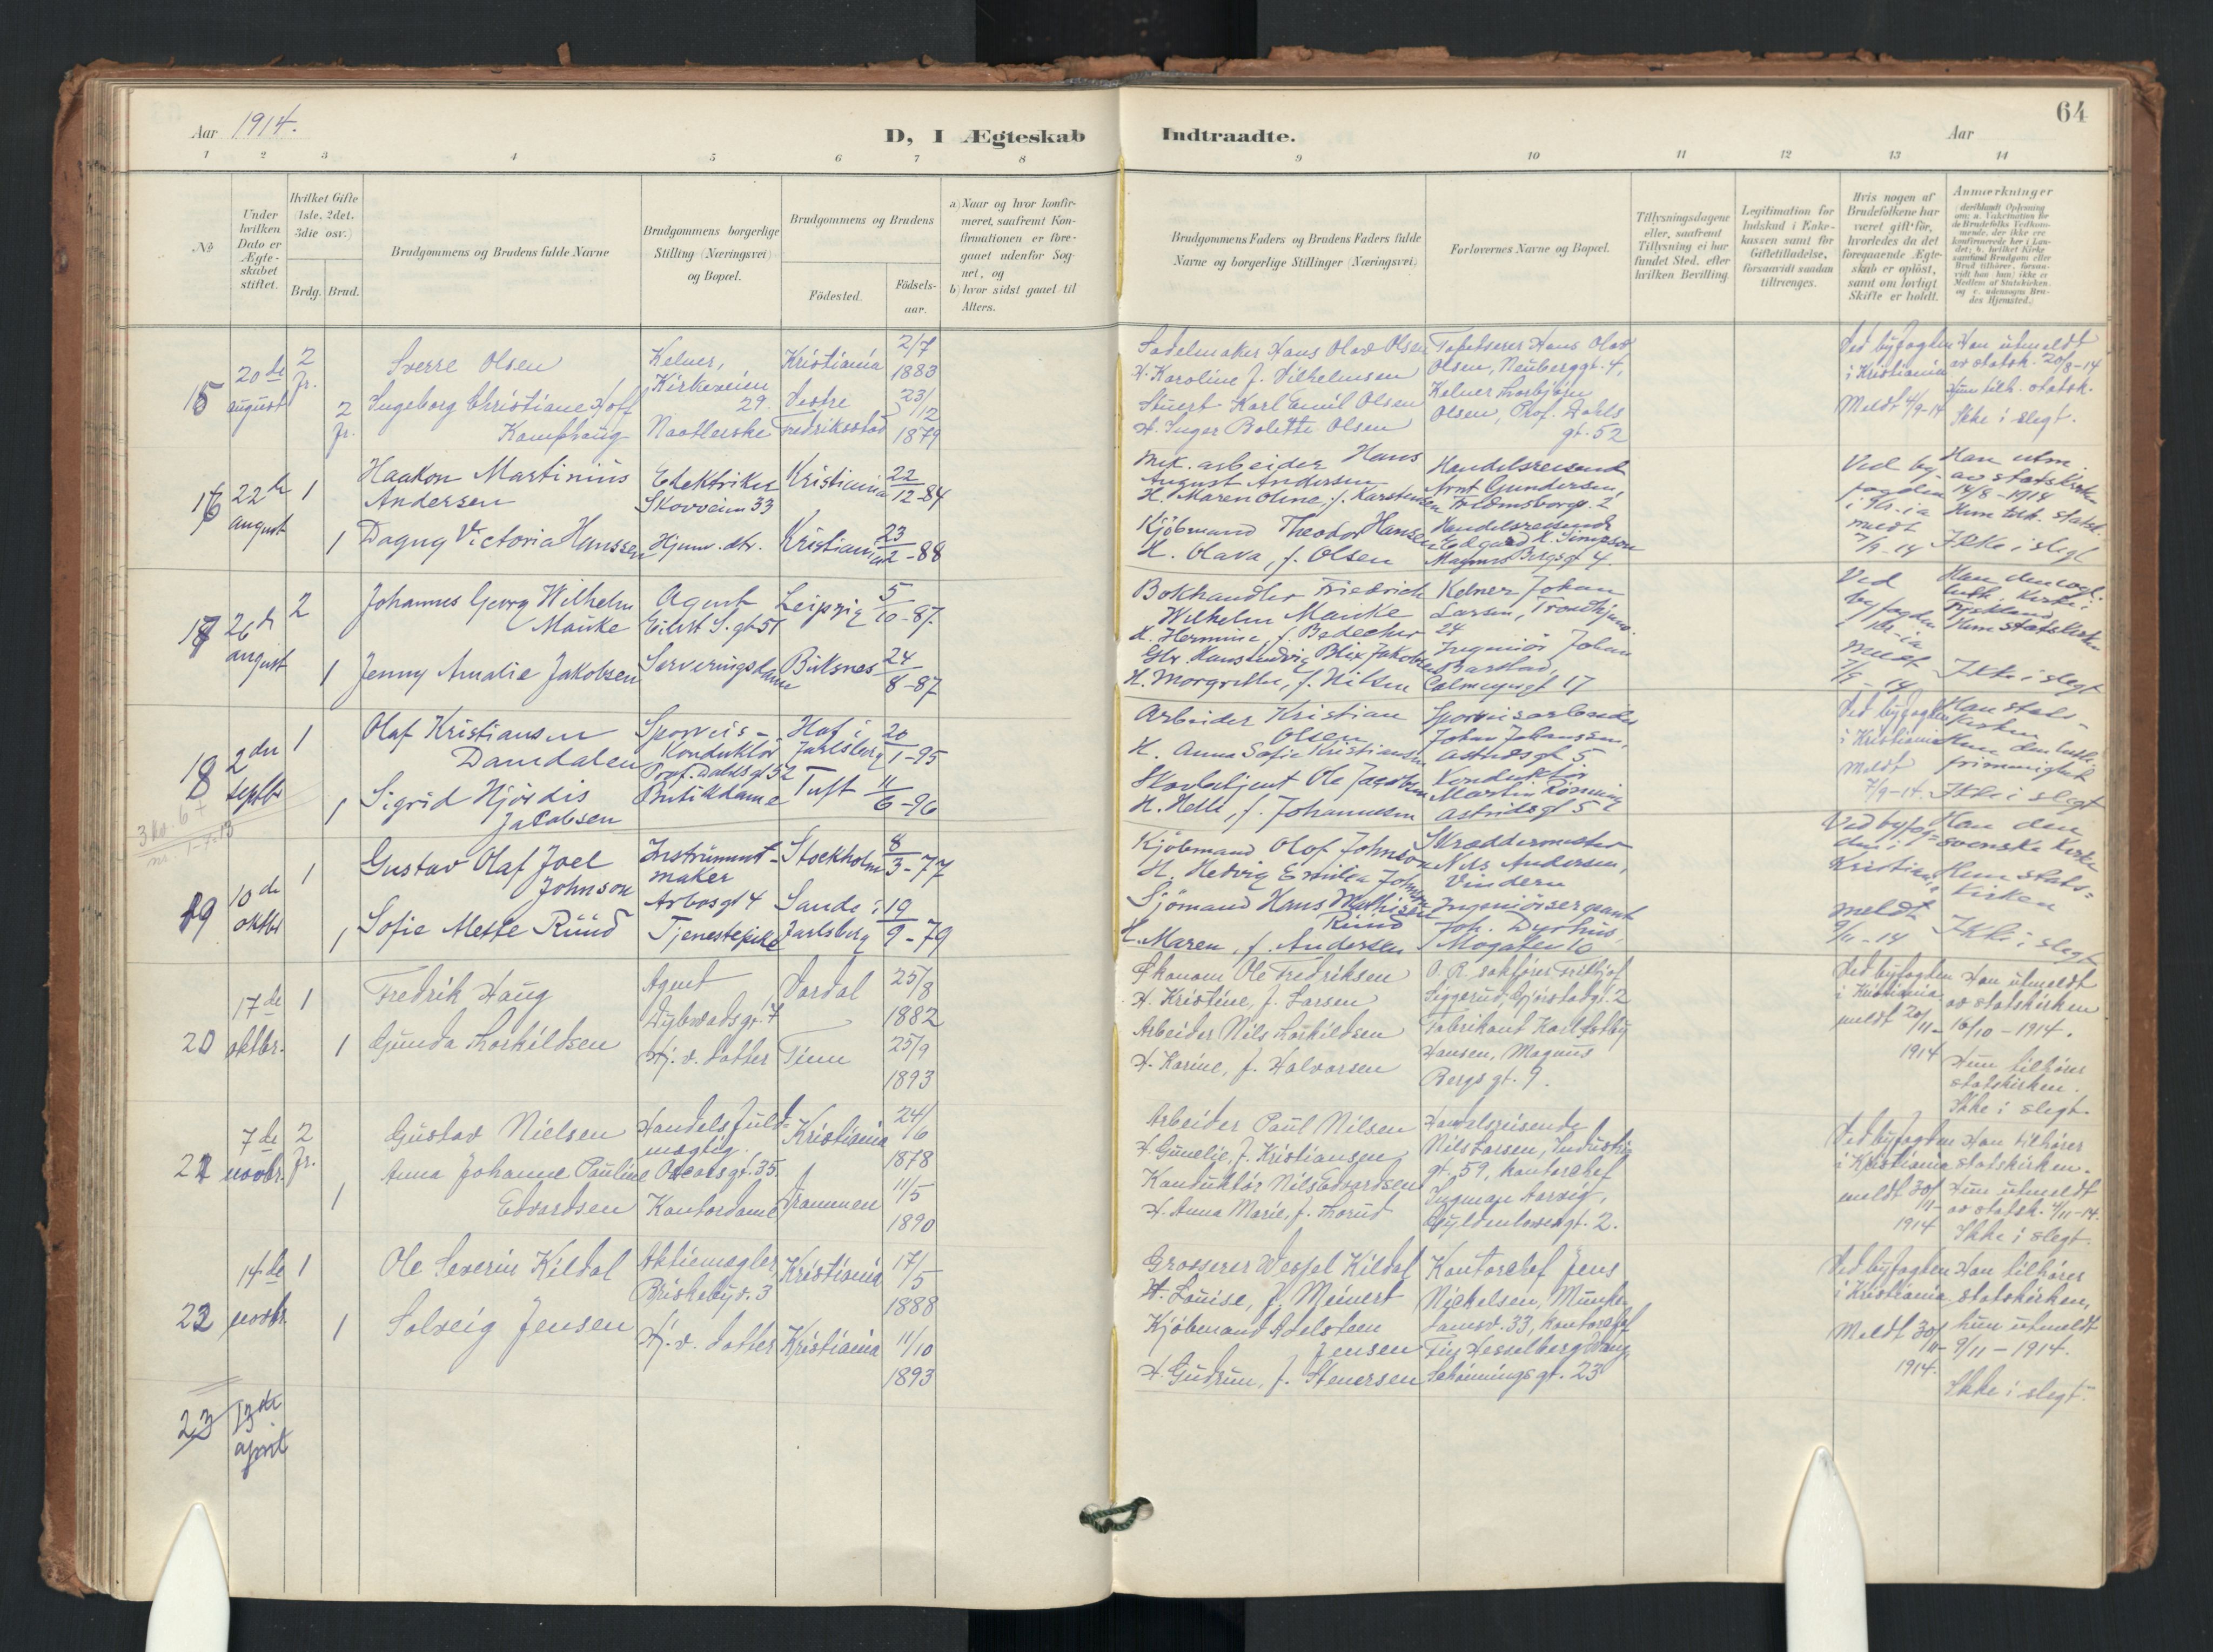 64
Aar 1914.
D, I Ægteskab Indtraadte.
Aar
1 2 3 4 5 6 7 8 9 10 11 12 13 14
No
Under hvilken Dato er Ægteskabet stiftet.
Hvilket Gifte (1ste, 2det, 3die osv.)
Brdg. Brud.
Brudgommens og Brudens fulde Navne
Brudgommens borgerlige Stilling (Næringsvei) og Bopæl.
Brudgommens og Brudens
Födested.
Födselsaar.
a) Naar og hvor konfirmeret, saafremt Konfirmationen er foregaaet udenfor Sognet, og
b) hvor sidst gaaet til Alters.
Brudgommens Faders og Brudens Faders fulde Navne og borgerlige Stillinger (Næringsvei)
Forlovernes Navne og Bopæl.
Tillysningsdagene eller, saafremt Tillysning ei har fundet Sted, efter hvilken Bevilling.
Legitimation for Indskud i Enkekassen samt for Giftetilladelse, forsaavidt saadan tiltrænges.
Hvis nogen af Brudefolkene har været gift før, hvorledes da det foregaaende Ægteskab er oplöst, samt om lovligt Skifte er holdt.
Anmærkninger
15
20de
august
2
fr.
Sverre Olsen
Kelner,
Kirkeveien
29.
Kristiania
2/7
1883
2
fr.
Ingeborg Christiane Hoff
Kamphaug
Naatlerske
Vestre
Fredriksstad
23/12
1879
Sadelmaker Hans Olav Olsen
H. Karoline f. Vilhelmsen
Stuert Karl Emil Olsen
H. Inger Bolette Olsen
Tapetserer Hans Olav
Olsen, Neuberggt. 4,
Kelner Thorbjörn
Olsen, Prof. Dahls
gt. 52
Ved byfogden
i Kristiania
Meldt 4/9-14
Han utmeldt
av statsk. 20/8-14
Hun tilh. statsk.
Ikke i slegt.
16
22de
august
1
Haakon Martinius
Andersen
Elektriker
Skovveien 33
Kristiania
22/12-84
1
Dagny Victoria Hanssen
Hjemv. dtr.
Kristiania
23/2-88
Mek. arbeider Hans
August Andersen
H. Maren Oline, f. Karstensen
Kjöbmand Theodor Hansen
H. Olava, f. Olsen
Handelsreisende
Arnt Gundersen,
Handelsreisende
Edgard K. Simpson
Magnus Bergsgt 4.
Ved byfogden
i Kr.ia
meldt
7/9-14
Han utm.
av statskirken
14/8-1914
Hun tilh. statsk.
Ikke i slegt
17
26de
august
2
Johannes Georg Wilhelm
Maucke
Agent
Eilert S. gt 51
Leipzig
5/10-87.
1
Jenny Amalie Jakobsen
Serveringsdame
Buksnes
24/8-87
Bokhandler Friedrich
Wilhelm Maucke
H. Hermine, f.
Hans Ludvig Blix Jakobsen
H. Margrethe, f. Nilsen
Kelner Johan
Larsen, Trondhjemv.
24
Ingeniör Johan
Colmeyersgt 17
Ved
byfogden
i Kr-ia
meldt
7/9-14
Han den evgl.
luth. Kirke i
Tyskland
Hun statskirken
Ikke i slegt
18
2den
septbr
1
Olaf Kristiansen
Damdalen
Sporveis-
Konduktör
Prof. Dahlsgt 52
Hof i
Jarlsberg
20/1-95
1
Sigrid Hjördis
Jakobsen
Butikdame
Tuft
11/6-96
Arbeider Kristian
Olsen
H. Anna Sofie Kristiansen
Skovbetjent Ole Jacobsen
H. Helle, f. Johannesen
Sporveisarbeider
Johan Johansen,
Astridsgt 5
Konduktör
Martin Rönning
Astridsgt 5
Ved byfogden
i Kristiania
Meldt
7/9-14.
Han stats-
kirken
Hun den luth.
frimenighet
Ikke i slegt
19
10de
oktbr
1
Gustav Olaf Joel
Johnson
Instrument-
maker
Arbosgt 4
Stockholm
8/3-77
1
Sofie Mette Ruud
Tjenestepike
Sande i
Jarlsberg
19/9-79
Kjöbmand Olof Johnson
H. Hedvig Emilia Johnson
Sjömand Hans Mathisen
Ruud
H. Maren, f. Andersen
Skræddermester
Nils Andersen,
Vindern
Ingeniörsergeant
Joh. Dyrhus,
Mogaten 10
Ved byfog-
den i
Kristiania
meldt
9/11-14
Han den
svenske Kirke
Hun stats-
kirken
Ikke i slegt
20
17de
oktbr.
1
Fredrik Haug
Agent
Dybwadsgt. 7
Vardal
25/8
1882
1
Gunda Thorkildsen
Hj. v. datter
Tinn
25/9
1893
Ökonom Ole Fredriksen
H. Kristine, f. Larsen
Arbeider Nils Thorkildsen
H. Karine, f. Halvorsen
O. R. sakfører Fridtjof
Siggerud, Gjörstadgt. 2
Fabrikant Karl Ludvig
Hansen, Magnus
Bergs gt. 9.
Ved byfogden
i Kristiania
meldt 20/11-
1914
Han utmeldt
av statskirken
16/10-1914.
Hun tilhörer
statskirken.
Ikke i slegt.
21
7de
novbr.
2
fr.
Gustav Nielsen
Handelsfuld-
mægtig.
Oscarsgt. 35.
Kristiania
24/6
1878
1
Anna Johanne Pauline
Edvardsen
Kontordame
Drammen
11/5
1890
Arbeider Paul Nilsen
H. Gunelie, f. Kristiansen
Konduktör Nils Edvardsen
H. Anna Marie, f. Thorud
Handelsreisende
Nils Larsen, Industri
gt. 59, Kontorchef
Ingman Aarvig,
Gyldenlovesgt. 2.
Ved byfogden
i Kristiania
meldt 30/11-
1914
Han tilhører
statskirken.
Hun utmeldt
av statsk. 4/11-14.
Ikke i slegt.
22
14de
novbr.
1
Ole Severin Kildal
Aktiemegler,
Briskebyv. 3
Kristiania
17/5
1888
1
Solveig Jensen
Hj. v. datter
Kristiania
11/10
1893
Grosserer Wessel Kildal
H. Louise, f. Meinert
Kjöbmand Adelsteen
Jensen
H. Gudrun, f. Stenersen
Kontorchef Jens
Nickelsen, Munke-
damsv. 33, Kontorchef
Finn Hesselberg
Schönningsgt. 23
Ved byfogden
i Kristiania
Meldt 30/11-
1914.
Han tilhörer
statskirken,
hun utmeldt
9/11-1914.
Ikke i slegt.
23
13de
april